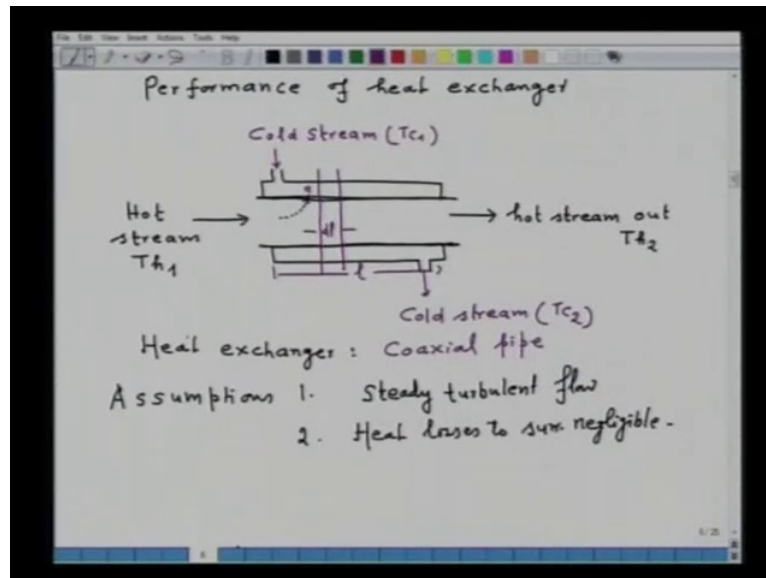 File Edit View Insert Actions Tools Help
Performance of heat exchanger
Cold stream (Tc1)
Hot stream Th1
hot stream out Th2
dl
l
Cold stream (Tc2)
Heat exchanger : Coaxial pipe
Assumptions 1. Steady turbulent flow
2. Heat losses to surr. negligible.